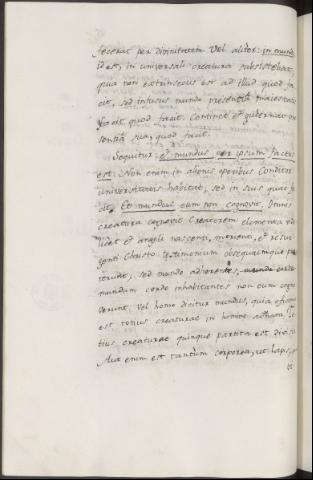 fecerat per divinitatem. Vel aliter: in mundo
id est, in universali creatura subsistebat,
quia non extrinsecus est ad illud quod fa-
cit, sed infusus mundo præsentiâ maiestatis
facit quod facit. Continet et gubernat præ-
sentiâ sua, quod facit.
Sequitur, et mundus per ipsum factus
est: Non enim in alienis operibus Conditor
universitatis habitat, sed in suis quæ fe-
cit. Et mundus eum non cognovit. Omnis
creatura cognovit Creatorem elementa vi-
licet et angeli nascenti, morienti, et resur-
genti Christo testimonium obsequiumque præ-
buerunt, sed mundo adhærentes,
mundum corde inhabitantes non eum cogno-
verunt. Vel homo dicitur mundus, quia
est totius creaturæ in homine adunata,
tius creaturæ quinque partita est divisio
Aut enim est tantùm corporea, ut lapis,